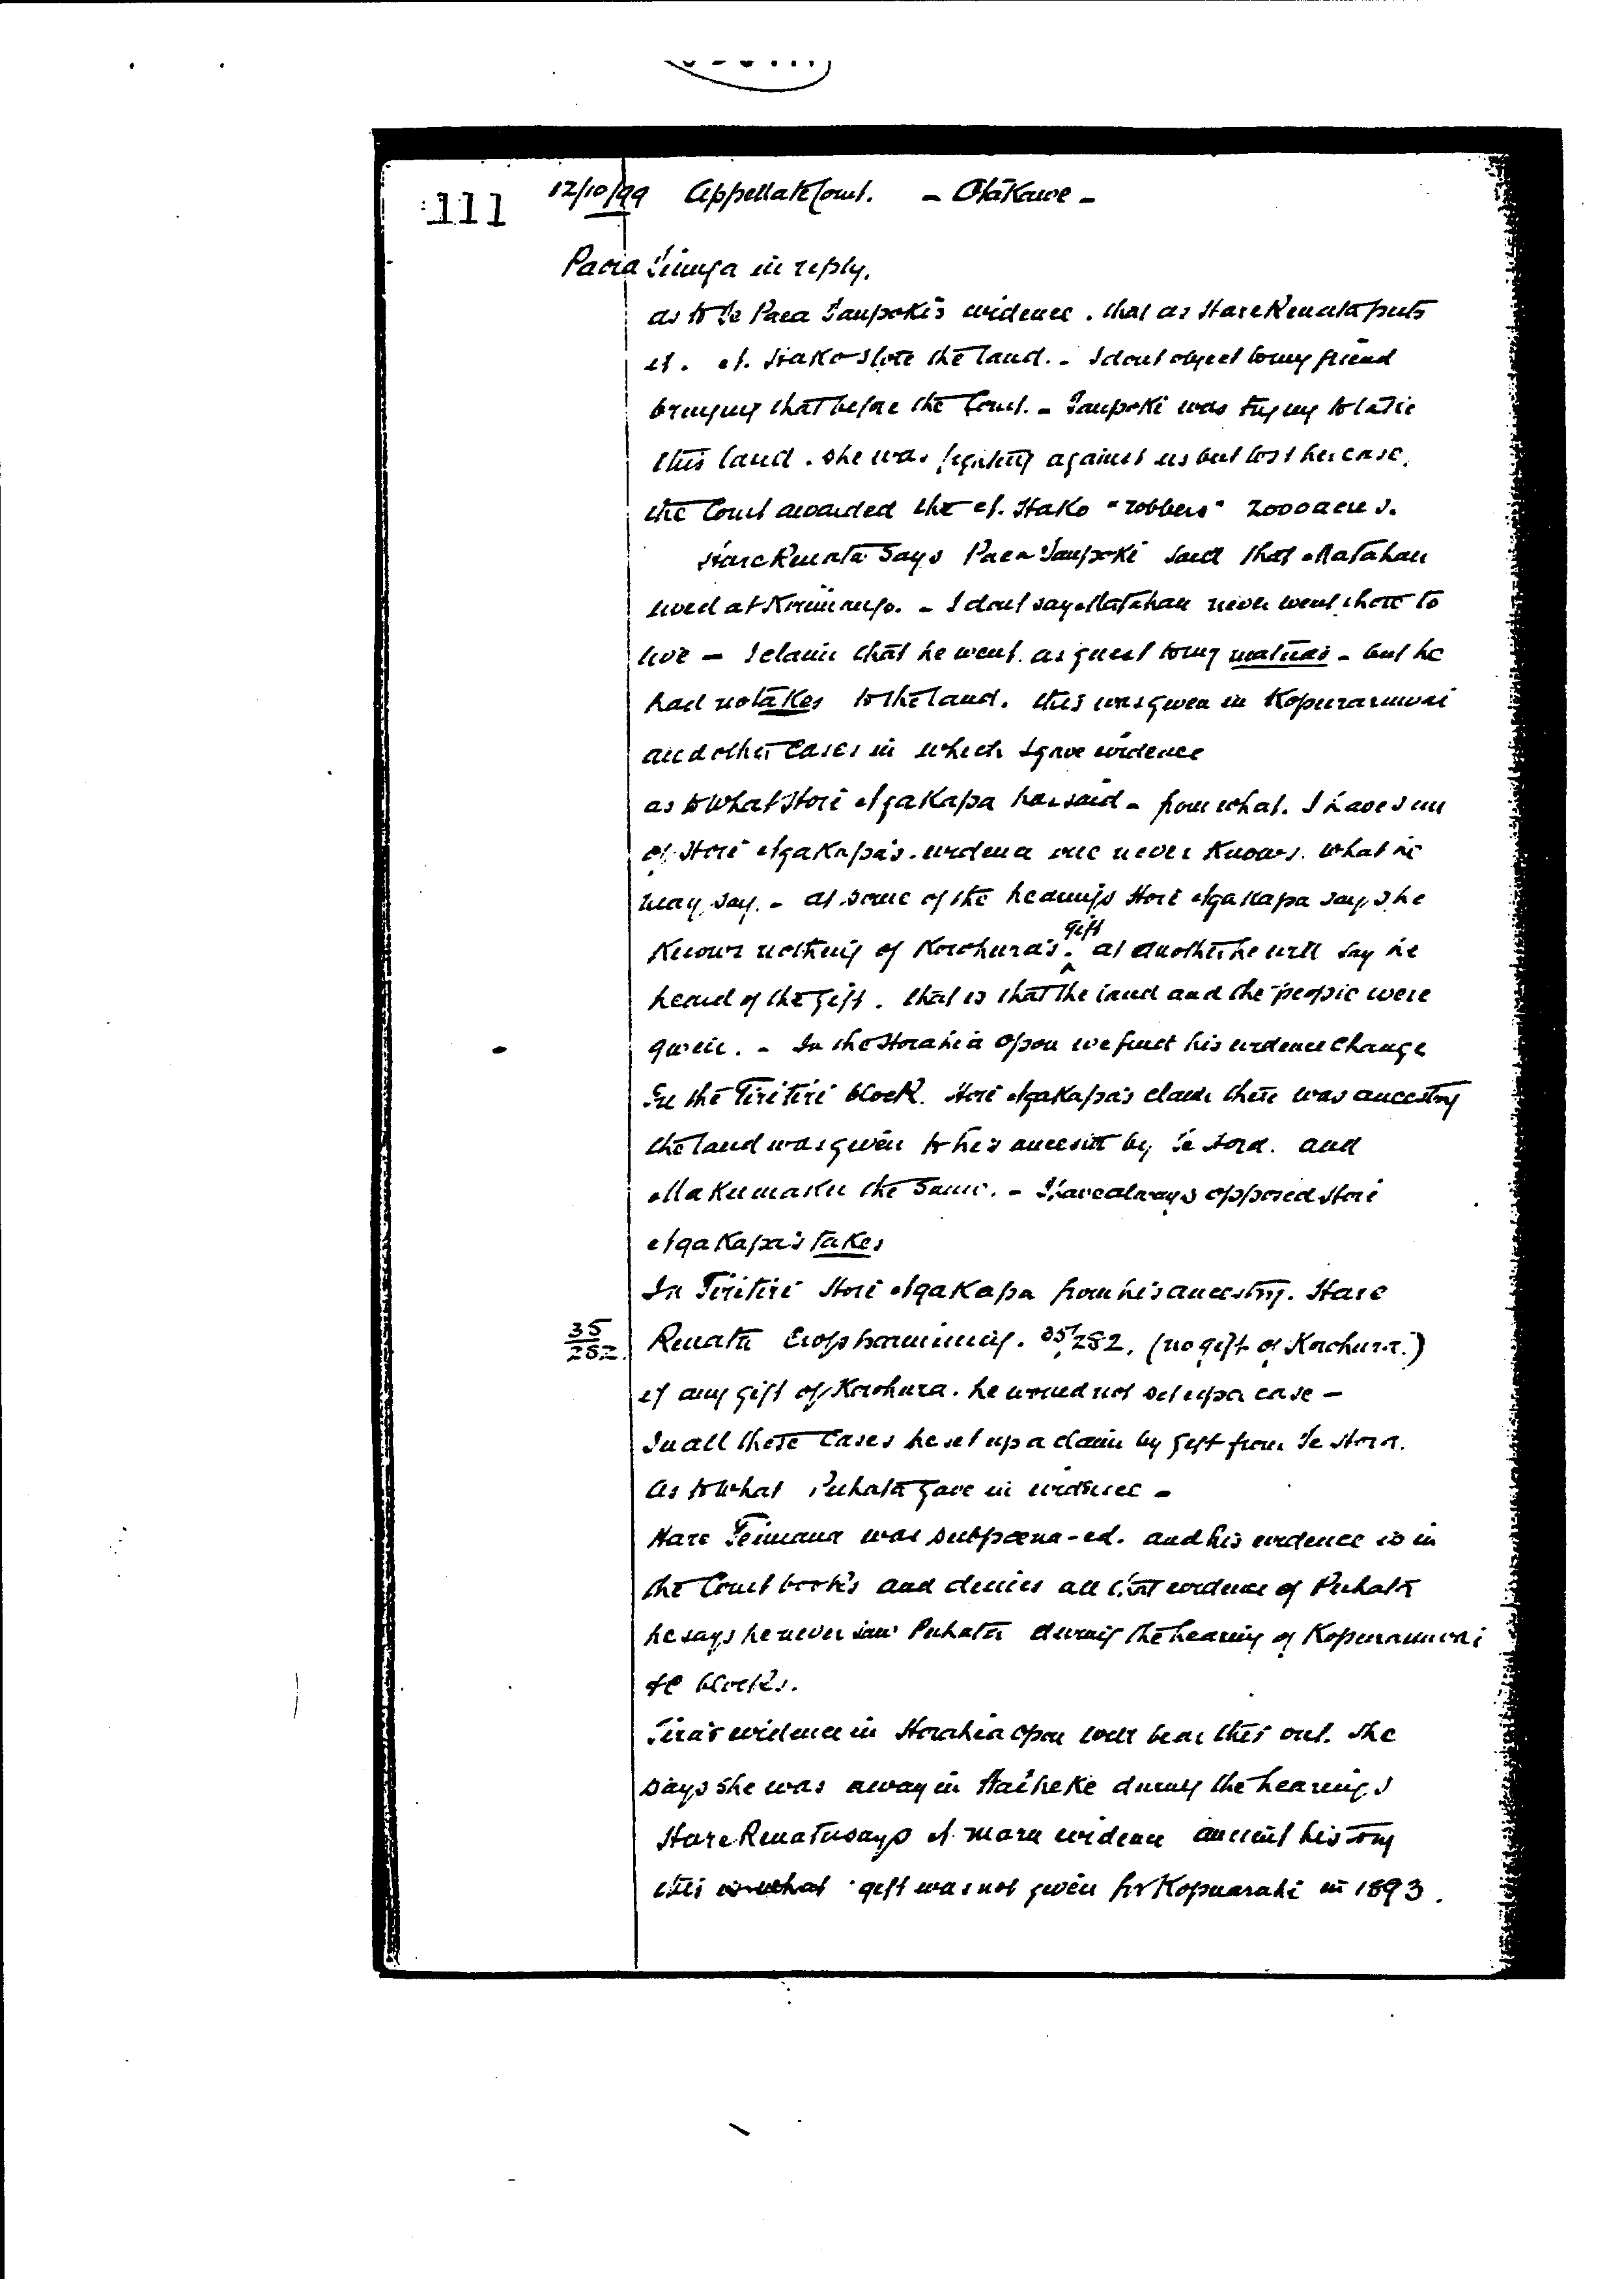 111
12/10/99 Appellate Court. - Otakawe -
Paora Tiunga in reply.
as to Te Paea Taupoki's evidence. that as Hare Renata puts
it. N. Hako stole the land. - I dont object to my friend
bringing that before the Court. - Taupoki was trying to
this land. she was fighting against us but lost her case.
the Court awarded the N. Hako "robbers" 2000 acres.
Hare Renata says Paea Taupoki said that Matahau
lived at . - I dont say Matahau never went there to
live - I claim that he went as guest to my matuas - but he
had no takes to the land. this was given in Kopuraruwai
and other cases in which I gave evidence
as to what Hori Ngakapa has said - from what. I have seen
of Hori Ngakapa's evidence one never knows. what he
may say. - at some of the hearings Hori Ngakapa says he
knows nothing of Korohura's gift. at another he will say he
heard of the gift. that is that the land and the people were
given. - In the Horahia Opou we find his evidence change
In the Tiritiri block. Hori Ngakapa's claim there was ancestry
the land was given to his ancestor by Te Hora. and
Makumaku the same. - I have always opposed Hori
Ngakapa's takes
In Tiritiri Hori Ngakapa from his ancestry. Hare
35/282. Renata Cross harmining. 35/282. (no gift of Korohura.)
if any gift of Korohura. he would not set up a case -
In all these Cases he set up a claim by gift from Te Hora.
As to what Puhata gave in evidence -
Hare Teimana was subpœna-ed. and his evidence is in
the Court books and denies all that evidence of Puhata
he says he never saw Puhata during the hearing of Kopuraruwai
&c blocks.
Tira's evidence in Horahia Opou will bear this out. She
says she was away in Waiheke during the hearings
Hare Renata says N. Maru evidence ancient history
this gift was not given for Kopuarahi in 1893.